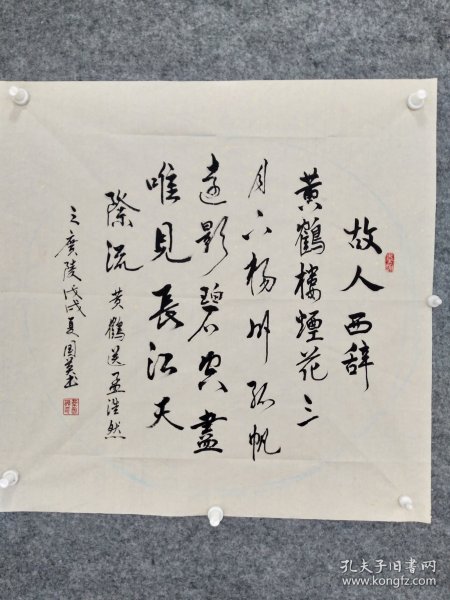 故人西辞
黄鹤楼烟花三
月下扬州孤帆
远影碧空尽
唯见长江天
际流 黄鹤送孟浩然
之广陵戊戌夏国英书
孔夫子旧书网
www.kongfz.com